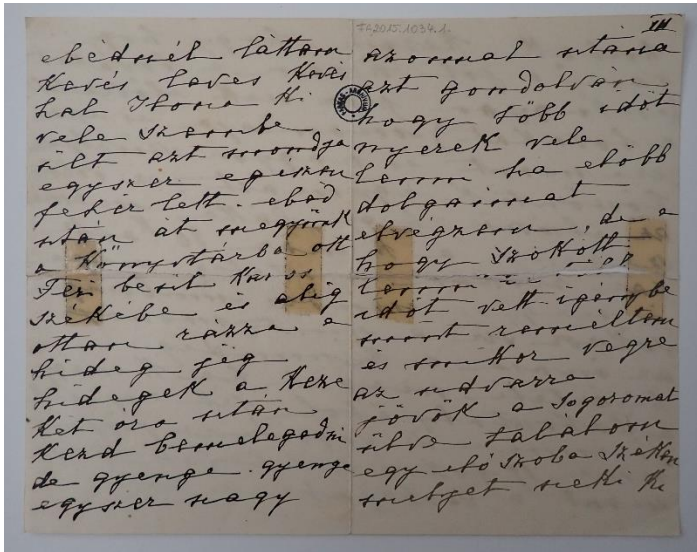 FF.2015.1034.1.
III
ebédnél láttam
Kevés leves Kevés
hal Ilona Ki
vele szembe
ült azt mondja
egyszer egiszen
feher lett. ebéd
után át megyünk
a Könyvtárba ott
Fezi besil
székébe és alig
ottan rázza a
hideg jég
hidegek a Keze
Két óra után
Kezd bemelegedni
de gyenge. gyenge
egyszer nagy
azonnal utána
azt gondolván
hogy több időt
nyerek vele
lenni ha előbb
dolgaimat
elvégzem, de a
hogy szokott
lenni
időt vett igénybe
mint reméltem
és mikor vegre
az udvarra
jövök a Sogoromat
ülve találom
egy elő szoba széken
melyet neki Ki